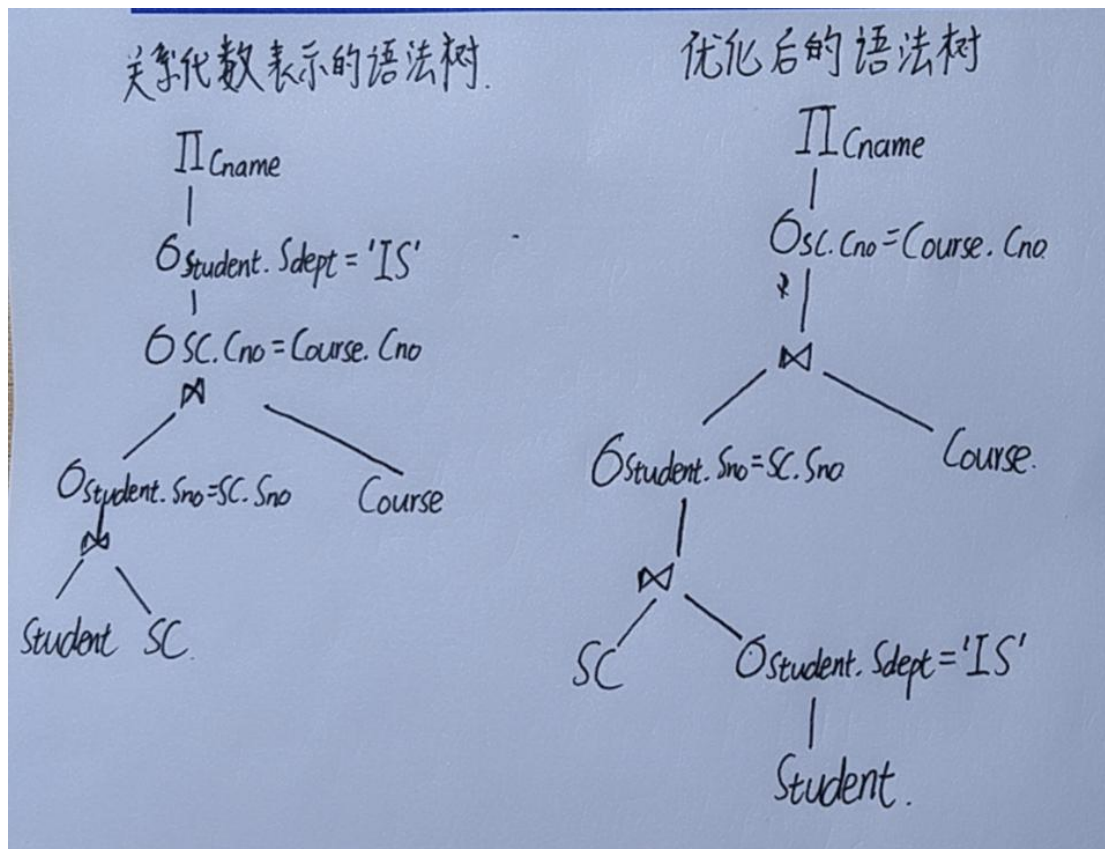 关系代数表示的语法树.
∏Cname
σStudent.Sdept='IS'
σSC.Cno=Course.Cno
⋈
σStudent.Sno=SC.Sno Course
⋈
Student SC.
优化后的语法树
∏Cname
σSC.Cno=Course.Cno
⋈
σStudent.Sno=SC.Sno Course.
⋈
SC σStudent.Sdept='IS'
Student.